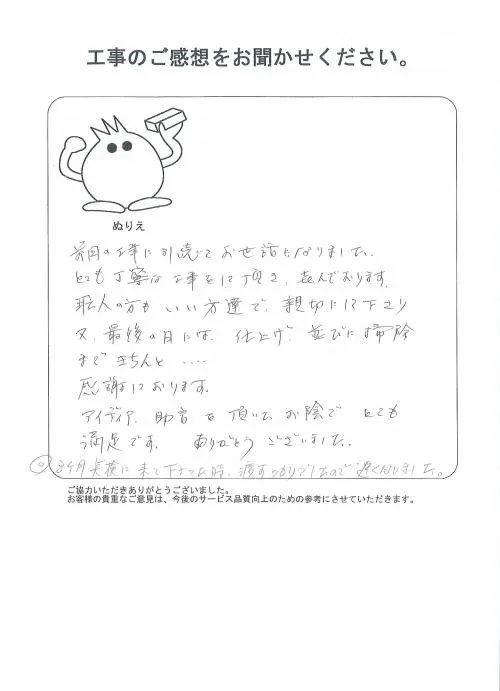 工事のご感想をお聞かせください。
ぬりえ
前回の工事に引続いてお世話になりました。
とても丁寧な工事をして頂き、喜んでおります。
職人の方も いい方達で、親切にして下さり
又、最後の日には、仕上げ、並びに掃除
まで きちんと ‥‥
感謝しております。
アイディア、助言を頂いて、お陰で とても
満足です。 ありがとう ございました。
◎3ヶ月点検に来て下さった時、渡すつもりでしたので遅くなりました。
ご協力いただきありがとうございました。
お客様の貴重なご意見は、今後のサービス品質向上のための参考にさせていただきます。